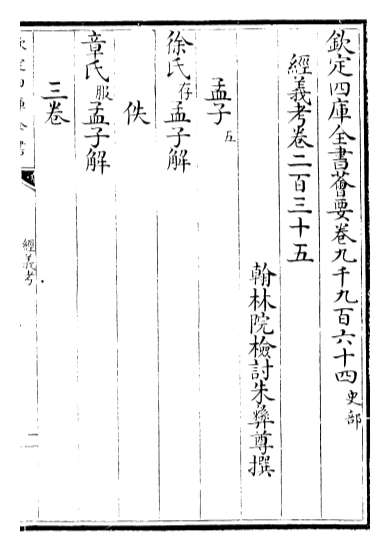 欽定四庫全書薈要卷九千九百六十四史部
經義考卷二百三十五
翰林院檢討朱彝尊撰
孟子五
徐氏存孟子解
佚
章氏服孟子解
三卷
欽定四庫全書
經義考
一